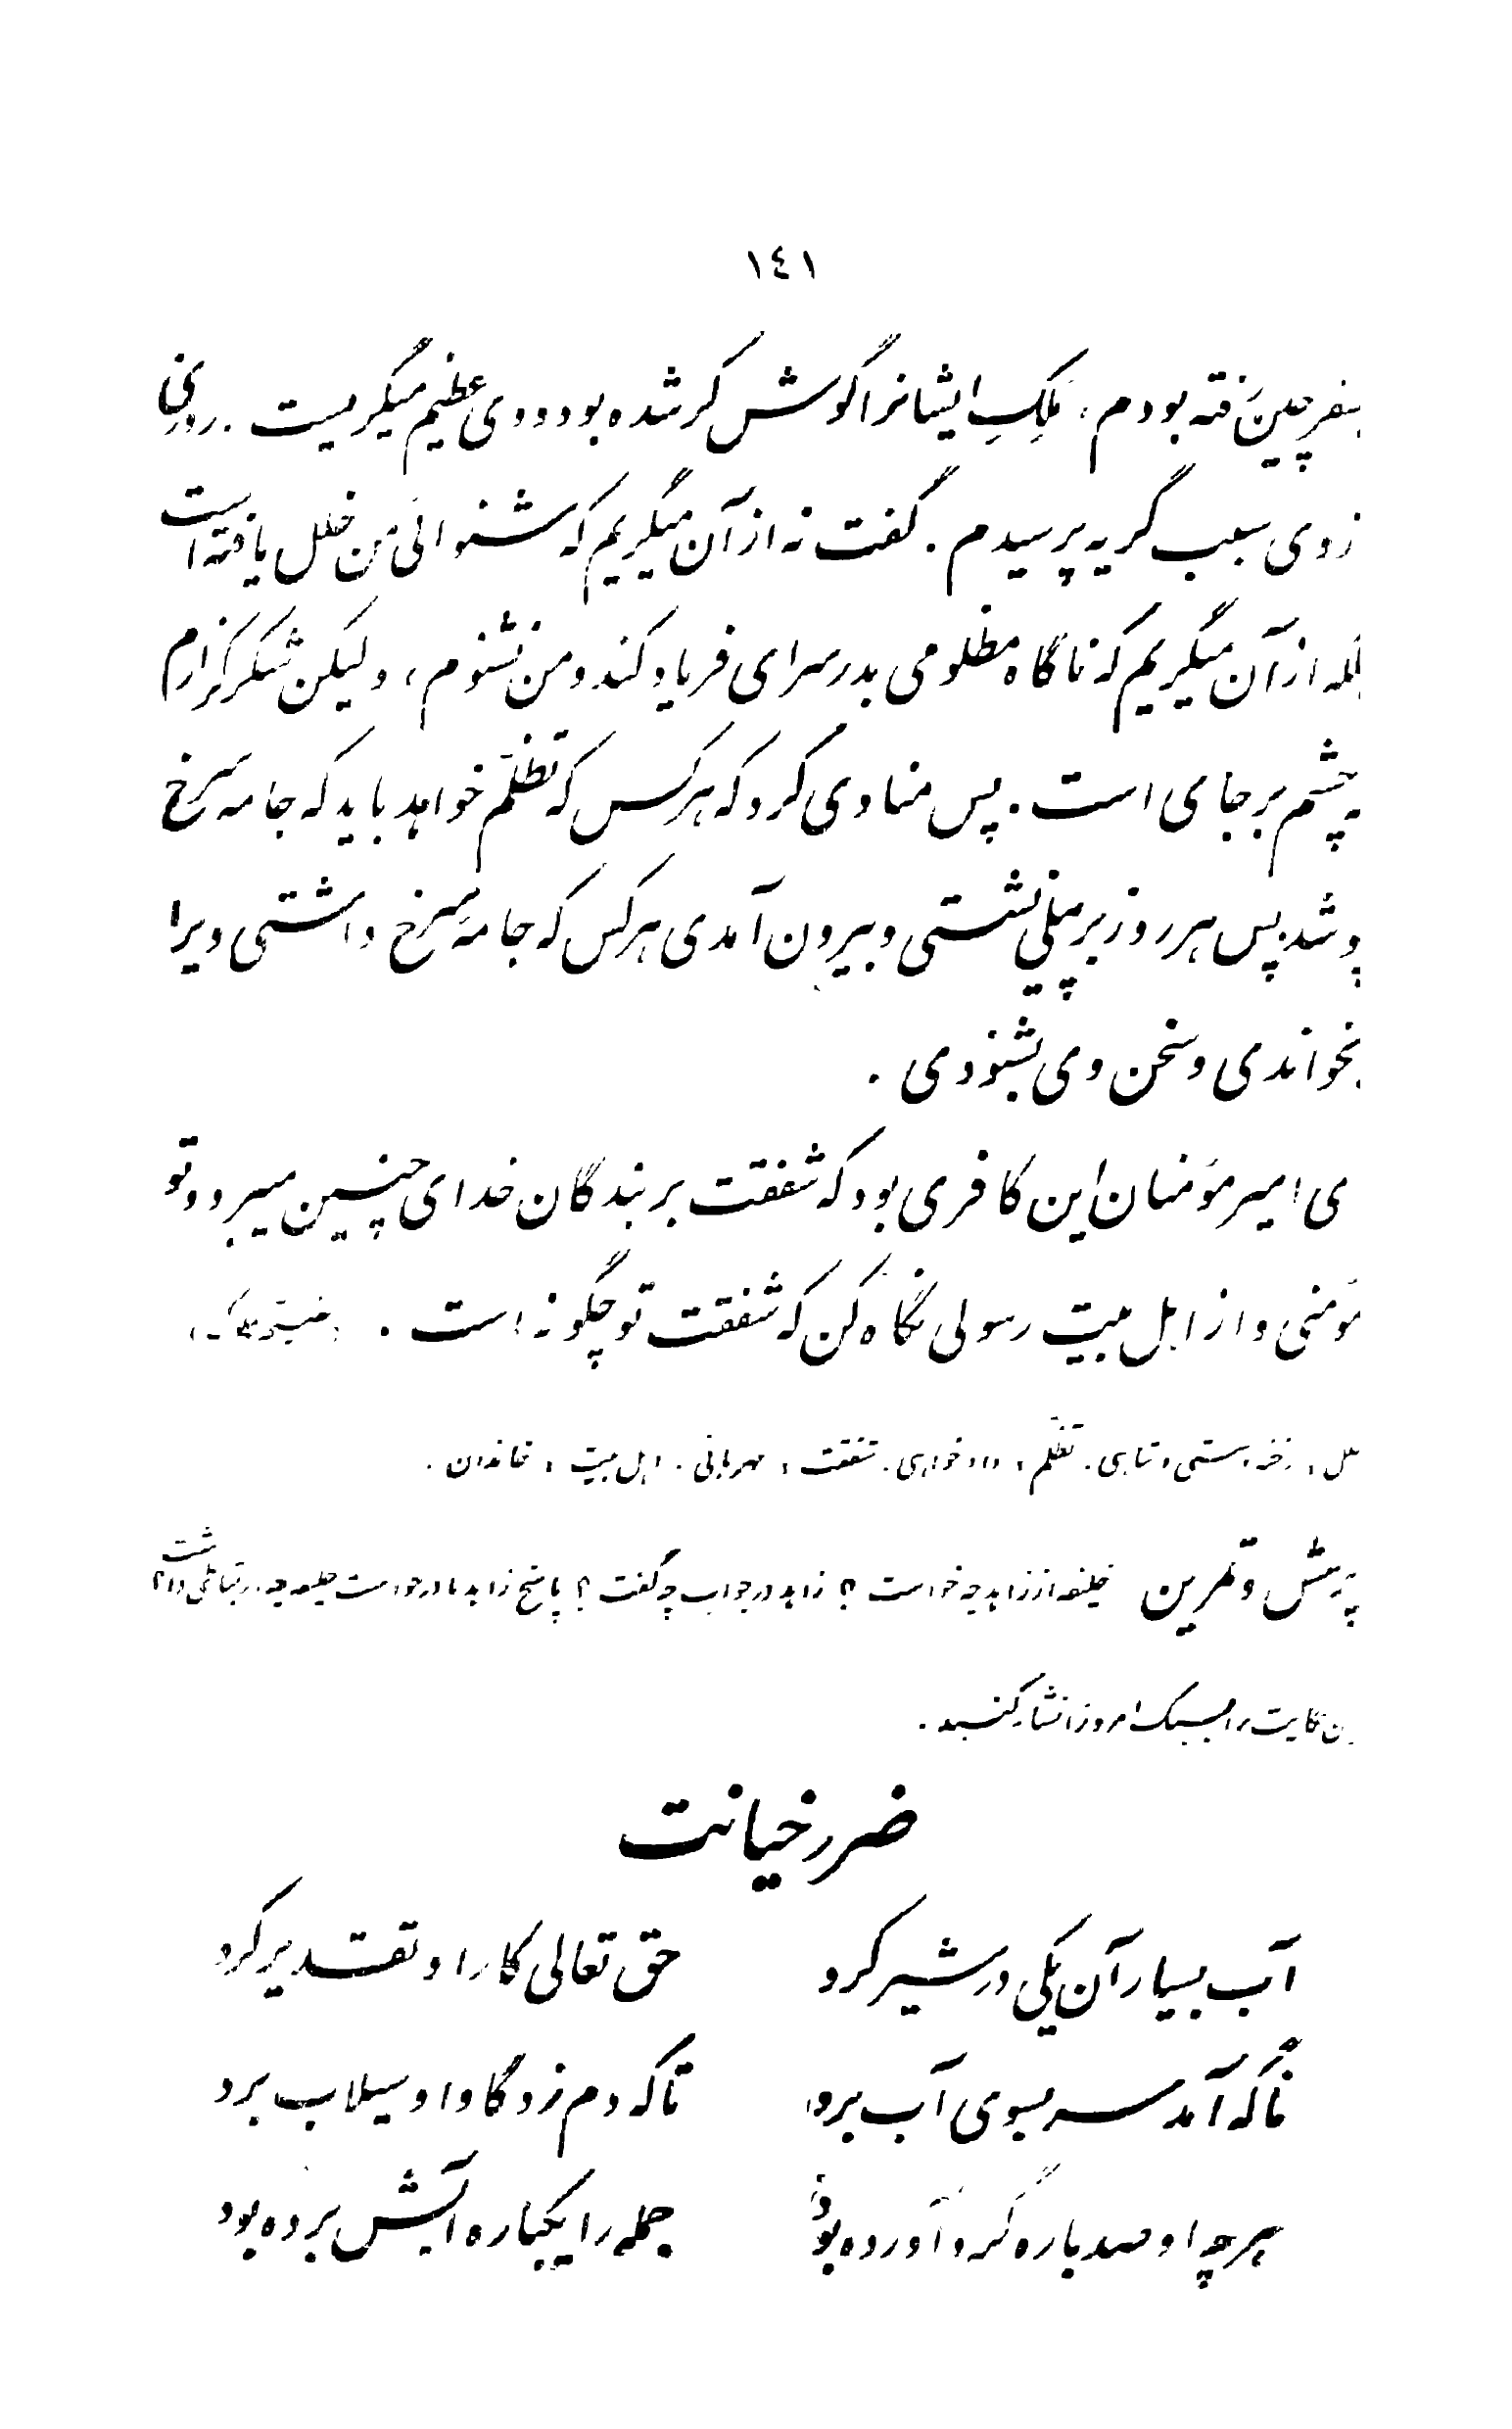 ١٤١
بسفر چین رفته بودم، مَلِکِ ایشانرا گوش کر شده بود و وی عظیم میگریست. روزی
از وی سبب گریه پرسیدم. گفت نه از آن میگریم که شنوائی من خلل یافته است
بلکه از آن میگریم که ناگاه مظلومی بدر سرای فریاد کند و من نشنوم، ولیکن شکر گزارم
که چشم بر جای است. پس منادی کرد که هر کس که تظلّم خواهد باید که جامه سرخ
پوشد. پس هر روز بر پیلی نشستی و بیرون آمدی هر کس که جامهٔ سرخ داشتی ویرا
بخواندی و سخن وی بشنودی.
ی امیر مؤمنان این کافری بود که شفقت بر بندگان خدای چنین میبرد و تو
مؤمنی و از اهل بیت رسولی نگاه کن که شفقت تو چگونه است.
خلل، رخنه، سستی، تباهی. تظلّم، دادخواهی. شفقت، مهربانی. اهل بیت، خاندان.
پرسش و تمرین خلیفه از زاهد چه خواست؟ زاهد در جواب چه گفت؟ پاسخ زاهد با درخواست خلیفه چه ارتباطی داشت؟
این حکایت را بسبک امروز انشاء کنید.
ضرر خیانت
آب بسیار آن یکی در شیر کرد حق تعالی کار او تقدیر کرد
ناگه آمد سر بسوی آب برد تا که دم زد گاو او سیلاب برد
هر چه او صد باره گرد آورده بود جمله را یکباره آبش برده بود